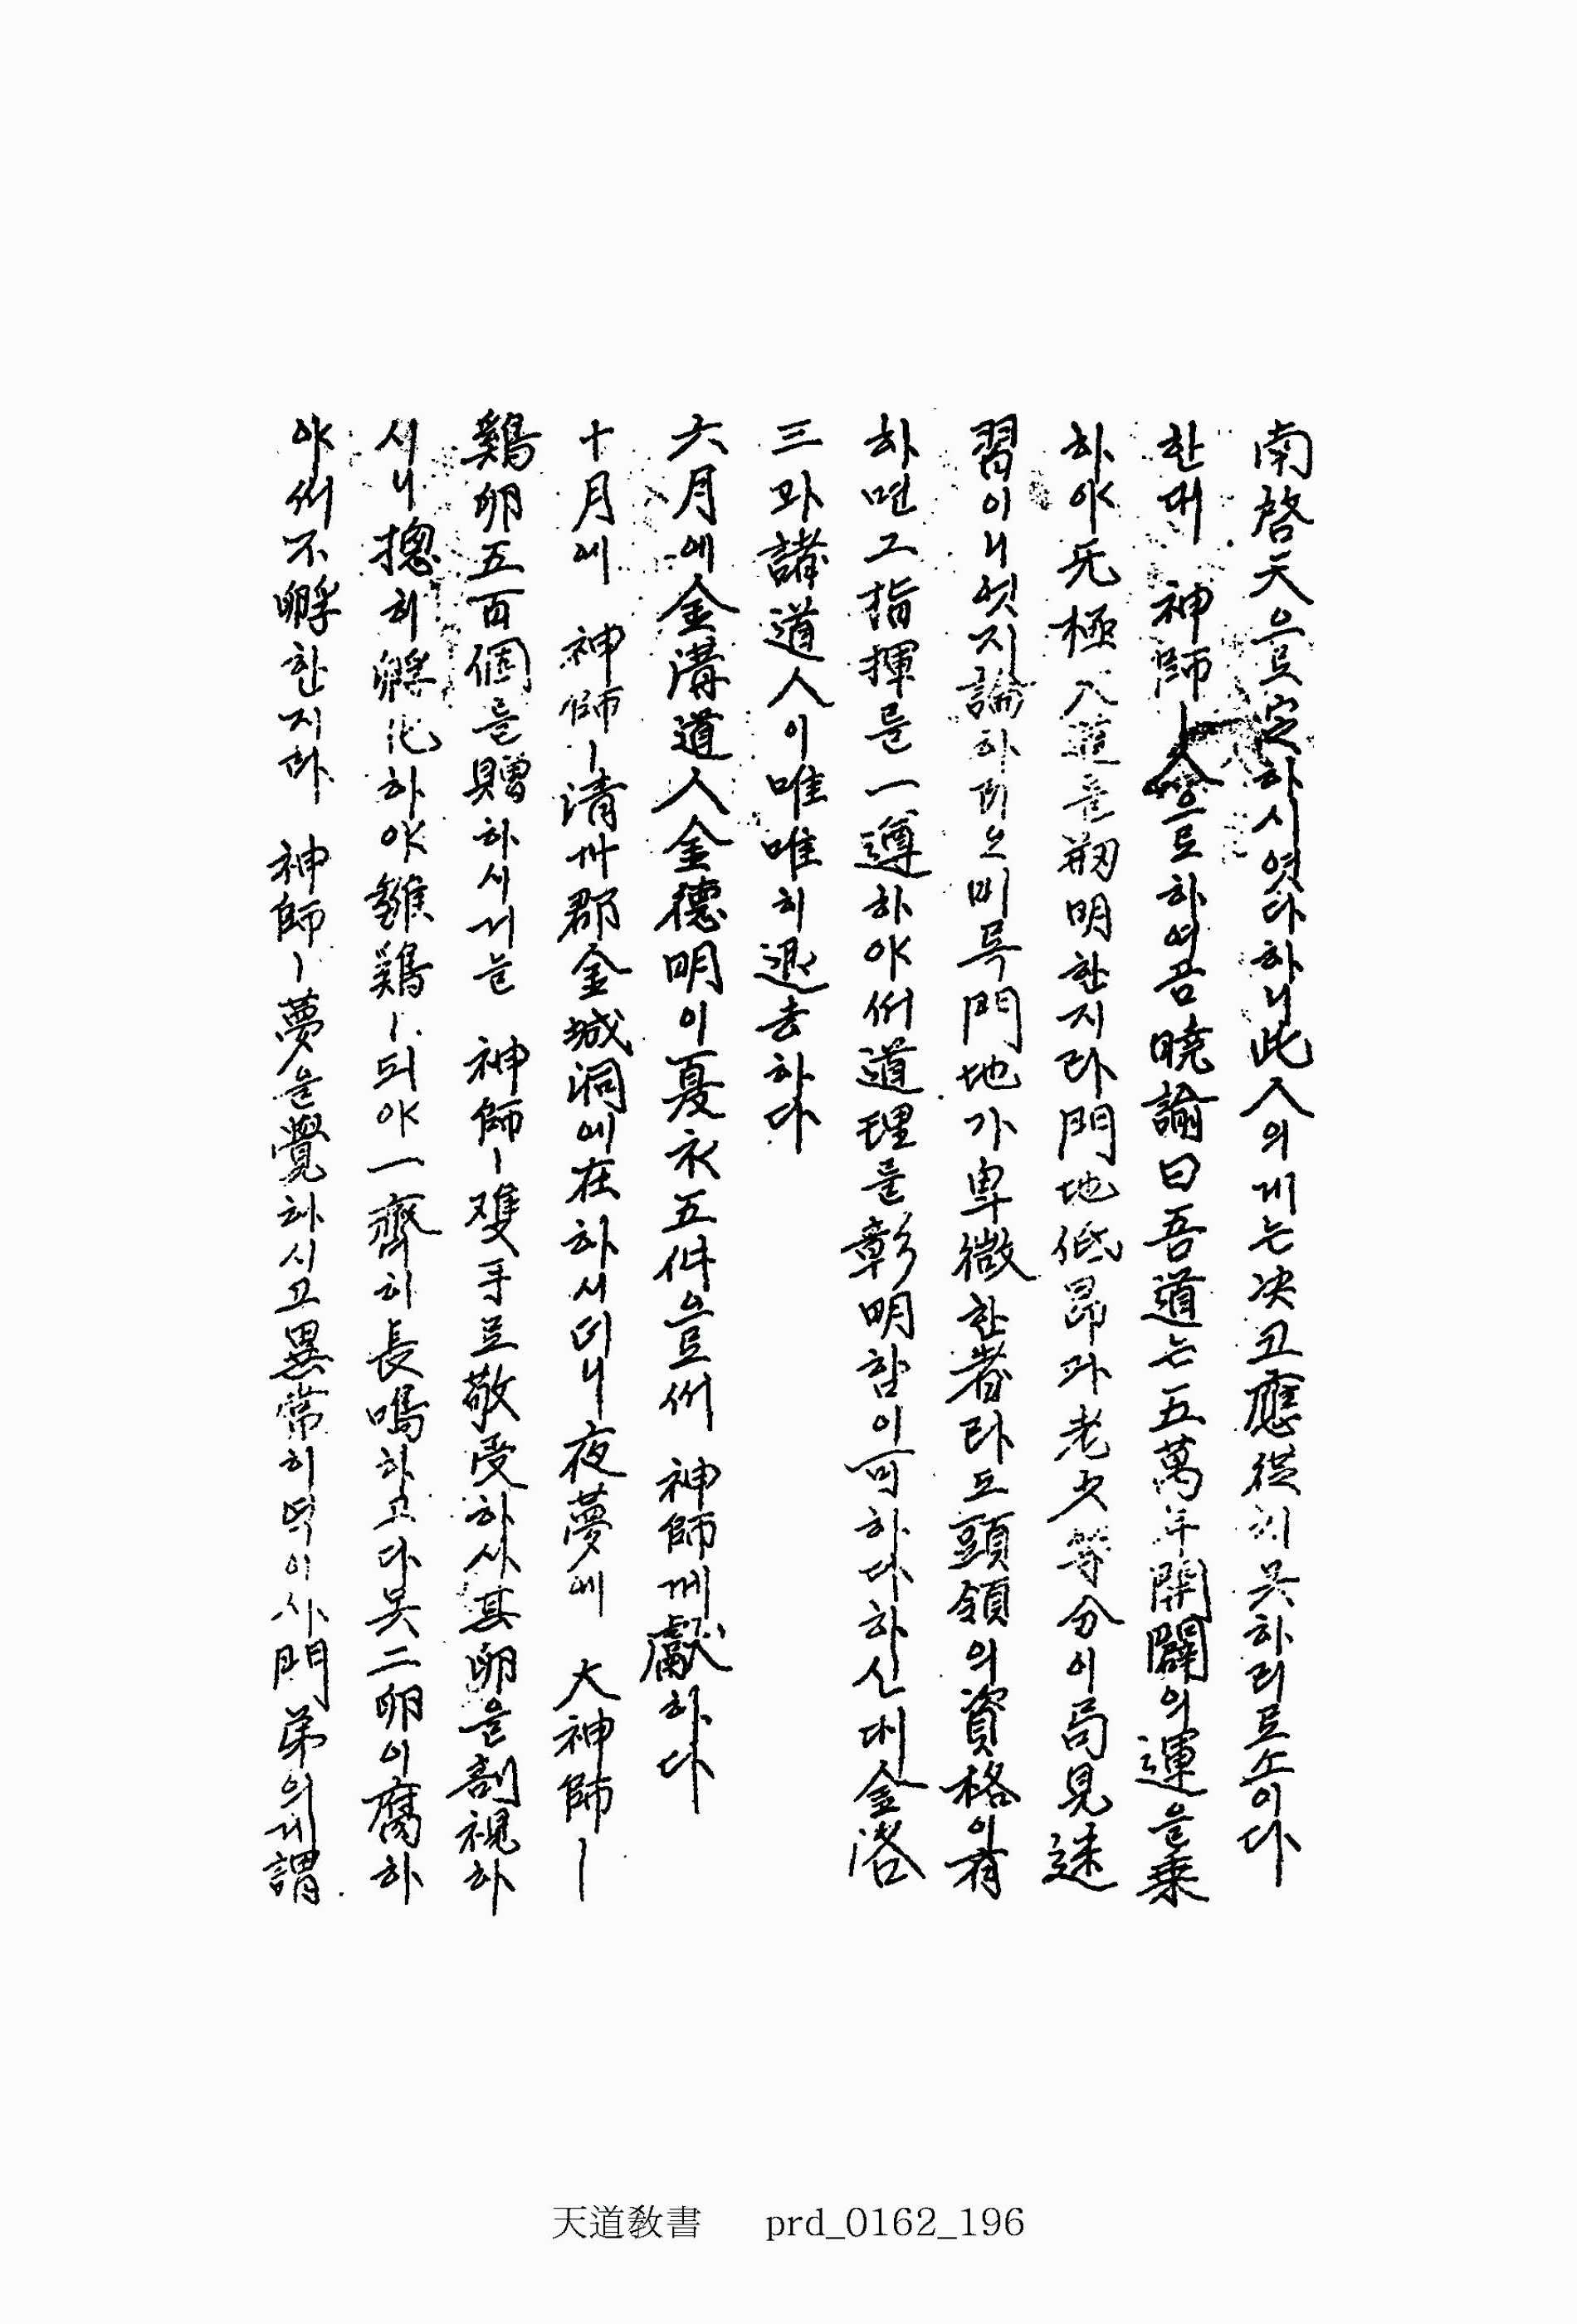 南啓天으로定하시엿다하니此人의게는決코應從치못하리로소이다
한대 神師ㅣ人으로하여곰曉諭曰吾道는五萬年開闢의運을乘
하야无極大道를刱明한지라門地低昂과老少等分이局見迷
習이니엇지論하리오비록門地가卑微한者라도頭領의資格이有
하면그指揮를一遵하야써道理를彰明함이可하다하신대金洛
三과諸道人이唯唯히退去하다
六月에金溝道人金德明이夏衣五件으로써 神師께獻하다
十月에 神師ㅣ淸州郡金城洞에在하시더니夜夢에 大神師ㅣ
鷄卵五百個를贈하시거늘 神師ㅣ雙手로敬受하사其卵을剖視하
시니摠히孵化하야雛鷄ㅣ되야一齊히長鳴하고다못二卵이腐하
야써不孵한지라 神師ㅣ夢을覺하시고異常히녁이사門弟의게謂
天道敎書 prd_0162_196